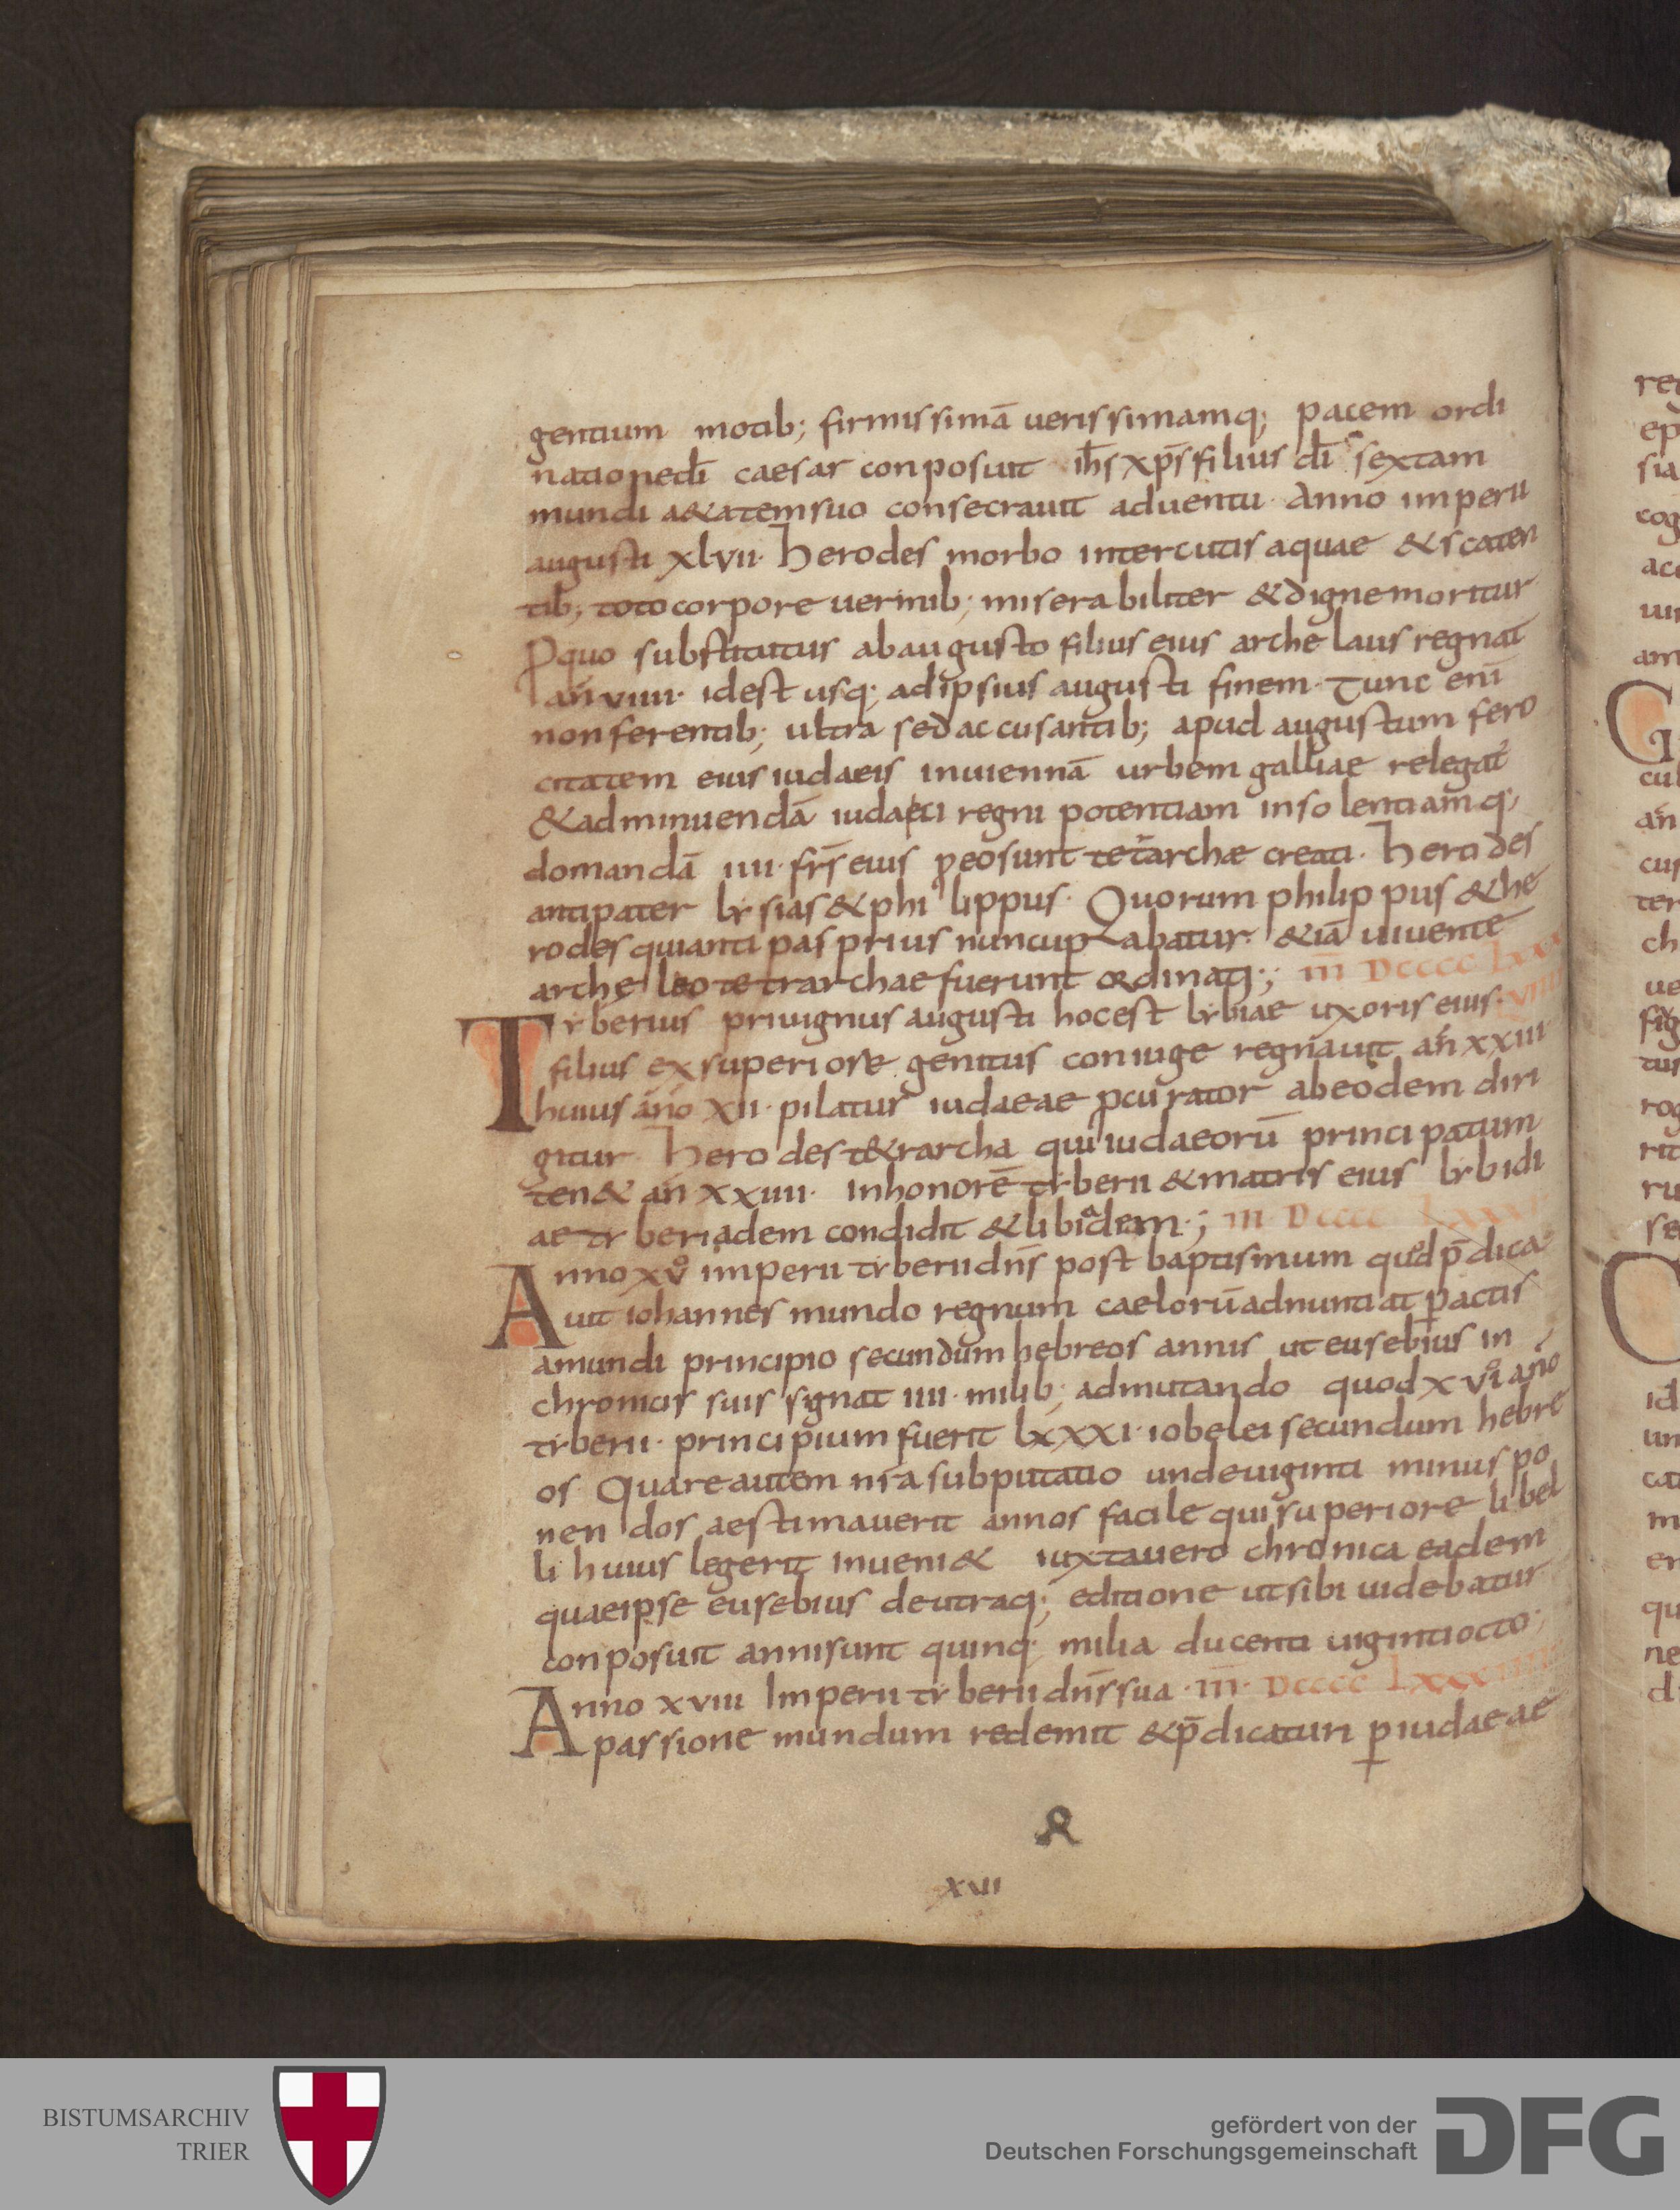 gentium motib; firmissimā uerissimamq; pacem ordi
natione dī caesar conposuit ihs xp̄s filius dī sextam
mundi a&atem suo consecrauit aduentu. Anno imperii
augusti xlvii. Herodes morbo intercutis aquae & scaten
tib; toto corpore uermib; misera biliter & digne moritur
P quo substitutus ab augusto filius eius arche laus regnat
añ viiii. id est usq; ad ipsius augusti finem. Tunc enī
non ferentib; ultra sed accusantib; apud augustum fero
citatem eius iudaeis in uiennā urbem galliae relegat̄
& ad minuendā iudaici regni potentiam insolentiamq;
domandā iiii. fr̄s eius p eo sunt tetrarchæ creati. Herodes
antipater lysias & philippus. Quorum philippus & he
rodes qui antipas prius nuncupabatur. & iā uiuente
archeleo tetrarchae fuerunt ordinati; iii̅ Dcccc lxxv
Tyberius priuignus augusti hoc est lybiae uxoris eius. viiii
filius ex superiore genitus coniuge regnauit añ xxiii
huius año xii. pilatus iudaeae pcurator ab eodem diri
gitur. Herodes t&rarcha qui iudaeorū principatum
ten& añ xxiiii. in honorē tyberii & matris eius lybidi
ae tyberiadem condidit & libiadem.; iii Dcccc lxxxi
Anno xv̊ imperii tyberii dn̄s post baptismum quod p̄dica
uit iohannes mundo regnum caelorū adnuntiat pactis
a mundi principio secundum hebreos annis ut eusebius in
chronicis suis signat iiii. milib; admutando quod xvi̊ año
tyberii. principium fuerit lxxxi. iobelei secundum hebre
os Quare autem nr̄a subputatio undeuiginti minus po
nendos aestimauerit annos facile qui superiore libel
li huius legerit inueni& iuxta uero chronica eadem
quae ipse eusebius de utraq; editione ut sibi uidebatur
conposuit anni sunt quinq; milia ducenti uigintiocto;
Anno xviii Imperii tyberii dn̄s sua .iii̅. Dcccc lxxxiiii
passione mundum redemit & p̄dicaturi p iudaeae
xvii
BISTUMSARCHIV
TRIER
gefördert von der
Deutschen Forschungsgemeinschaft
DFG